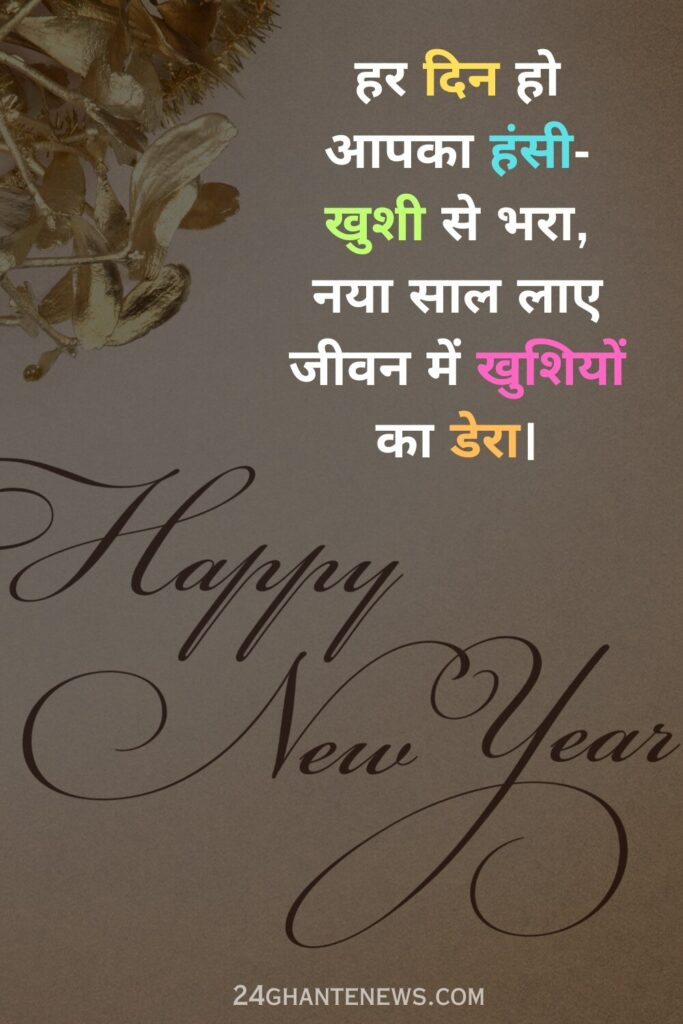 हर दिन हो
आपका हंसी-
खुशी से भरा,
नया साल लाए
जीवन में खुशियों
का डेरा।
Happy
New Year
24GHANTENEWS.COM